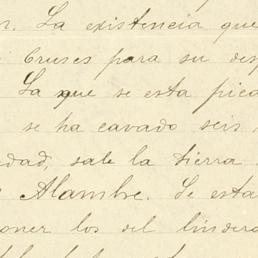 r. La existencia que
Cruses para su des
La que se esta pica
se ha cavado seis
dad, sale la tierra
Alambre. Se esta
oner los del lindero